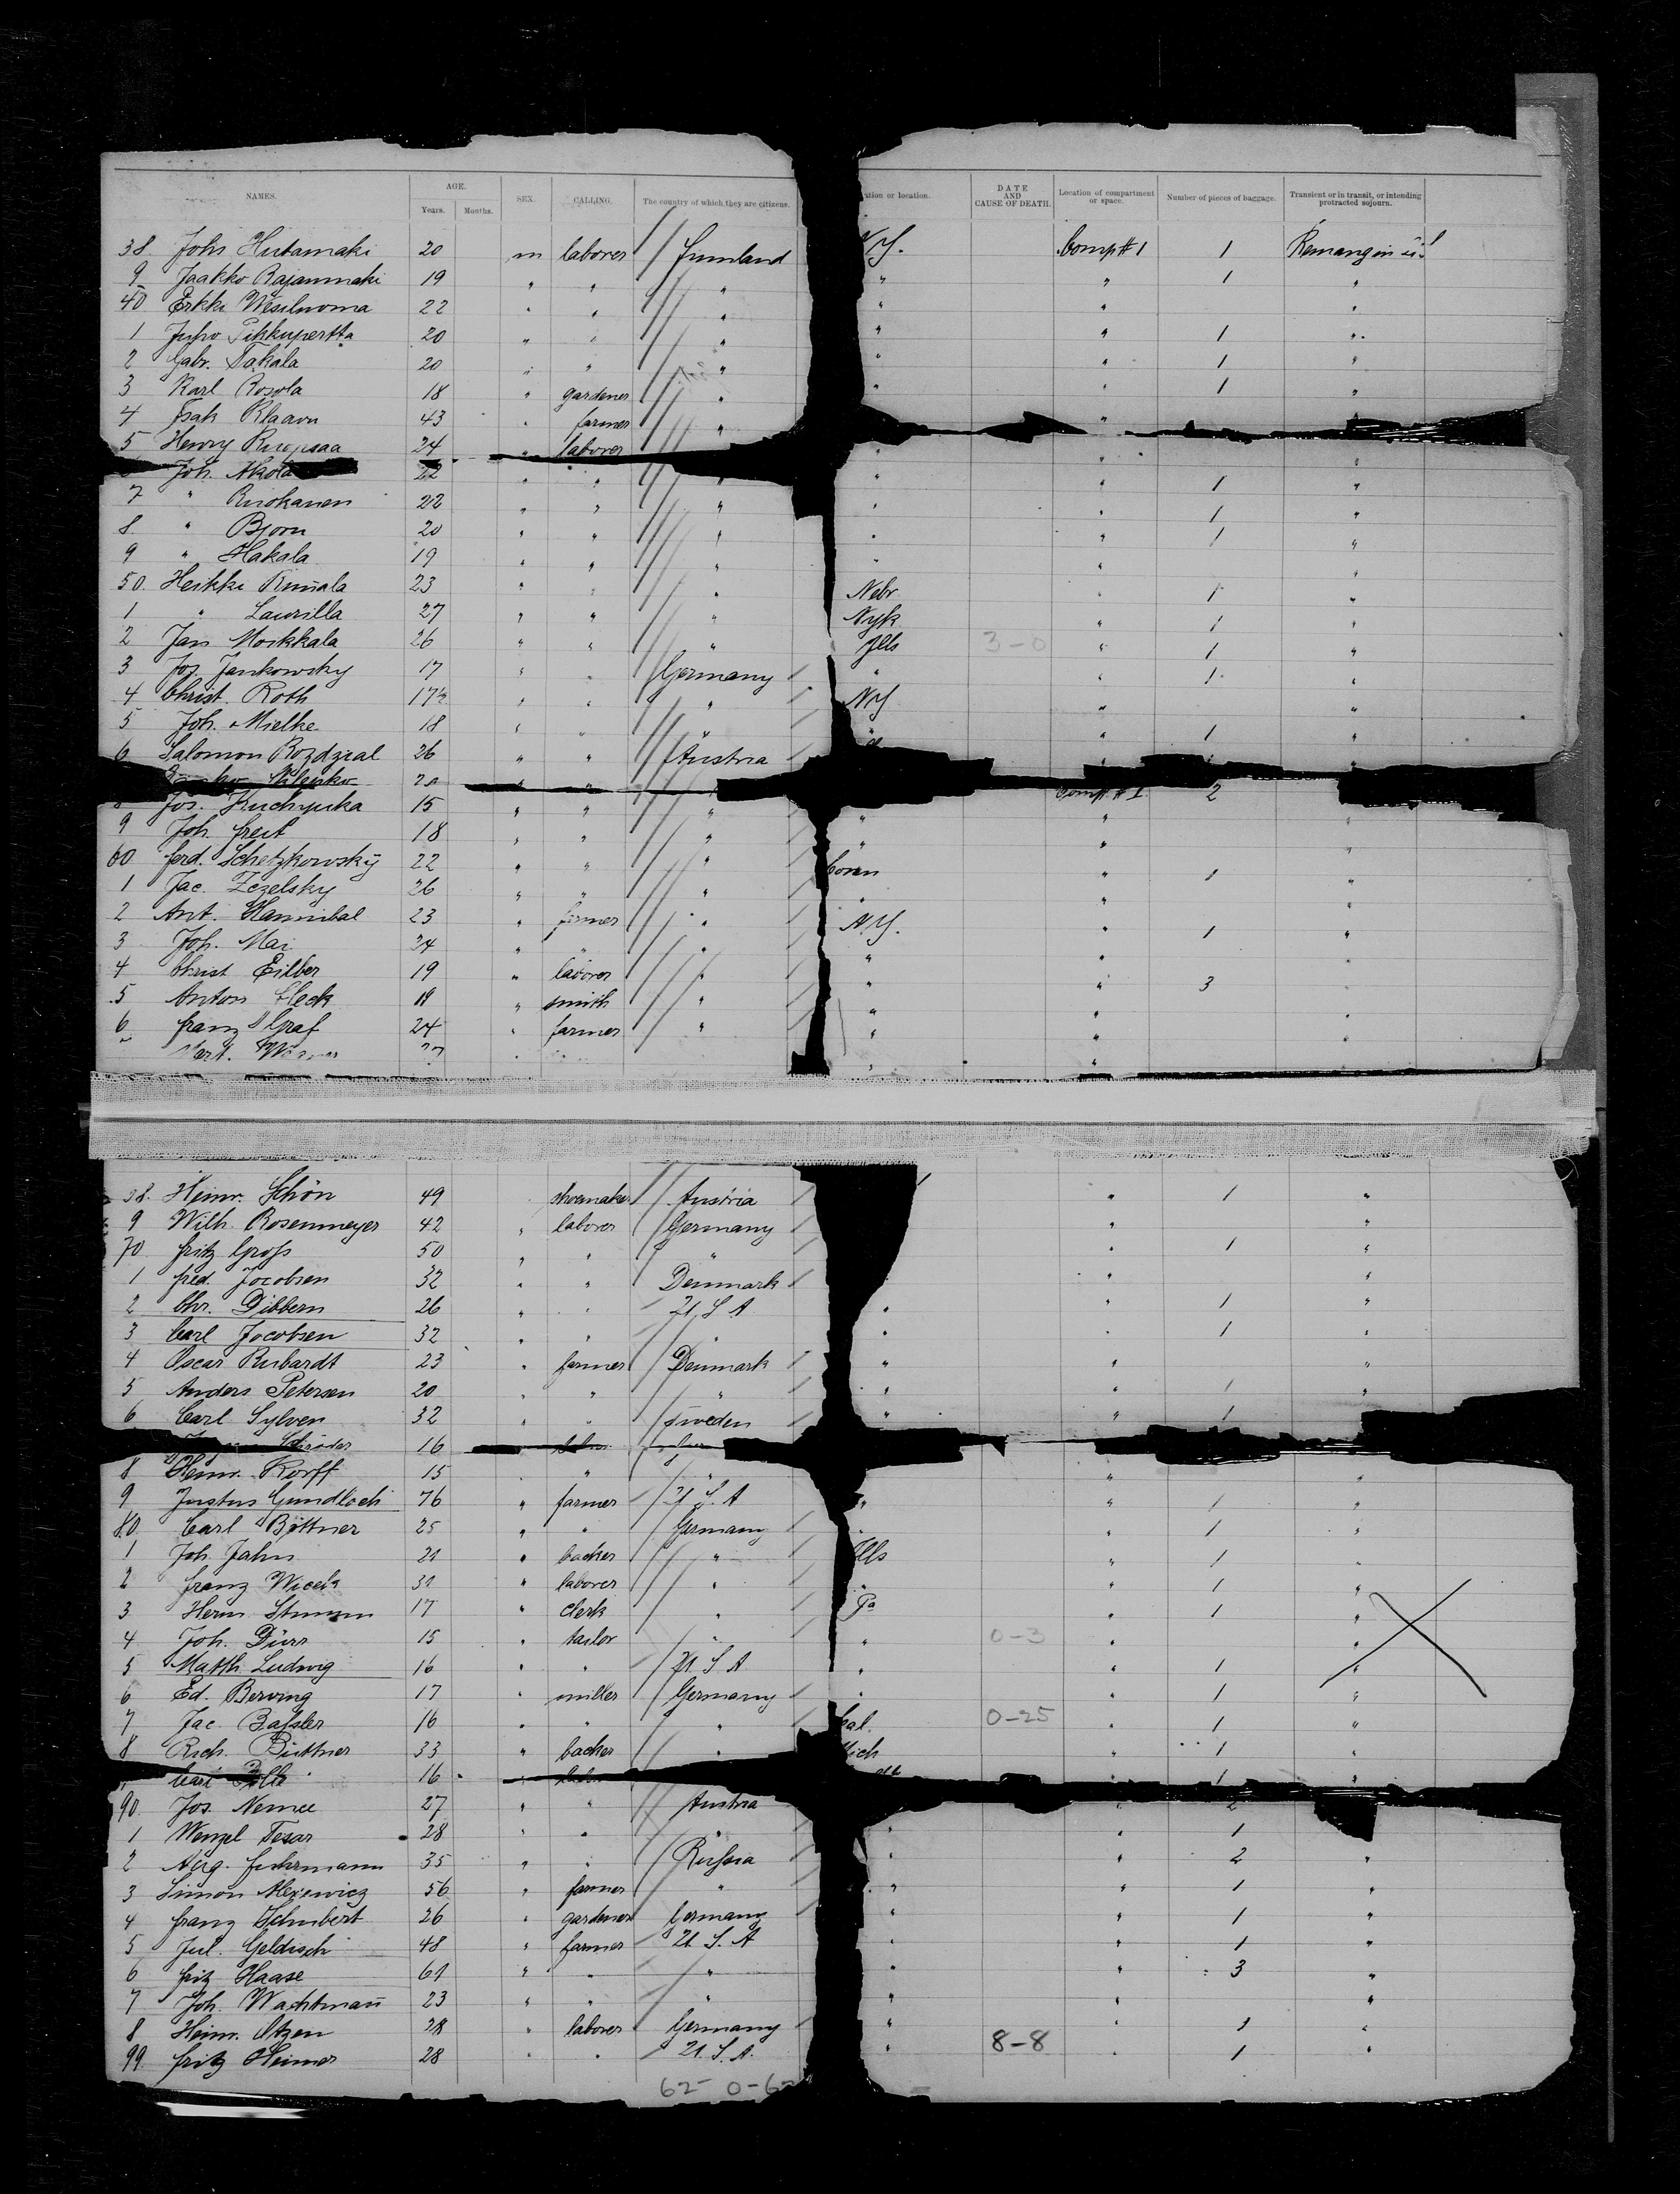 NAMES. AGE. SEX. CALLING. The country of which they are citizens. tion or location. DATE AND CAUSE OF DEATH. Location of compartment or space. Number of pieces of baggage. Transient or in transit, or intending protracted sojourn.
Years. Months.
38. Joh Hutamaki 20 m laborer Finnland N.Y. Comp # 1 1
9 Jaakko Rajanmaki 19 " " " " " 1 "
40 Erkki 22 " " " " " "
1 Juho Pikkupertta 20 " " " " " 1 "
2 Gabr. Takala 20 " " " " " 1 "
3 Karl Rosola 18 " gardener " " " 1 "
4 Isak 43 " farmer " "
5 Henry 24 " laborer " " "
Joh. 22 " " " " " 1 "
7 " Ruokanen 22 " " " " " 1 "
8 " Bjorn 20 " " " " " 1 "
9 " Hakala 19 " " " " " "
50. Heikki 23 " " " Nebr " 1 "
1 " Laurilla 27 " " " Nyk " 1 "
2 Jan Moikkala 26 " " " Ills 3-0 " 1 "
3 Jos. Jankowsky 17 " " Germany " " 1 "
4 Christ. Roth 17½ " " " NY " "
5 Joh. Mielke 18 " " " " " 1 "
6 Salomon Rozdzial 26 " " Austria
20 "
8 Jos. Kuchynka 15 " " " Comp. # 1 2
9 Joh. Freit 18 " " " " " "
60 Ferd. Schetzkowsky 22 " " " Conn " 1 "
1 Jac. Zczelsky 26 " " " " " "
2 Ant. Hannibal 23 " farmer " N.Y. " 1 "
3 Joh. Mai 24 " " " " "
4 Christ Eilber 19 " laborer " " " 3
5 Anton Fleck 19 " smith " " " "
6 Franz Graf 24 " farmer " " " "
68. Heinr. Schön 49 shoemaker Austria " 1 "
9 Wilh. Rosenmeyer 42 " laborer Germany " "
70 Fritz Groß 50 " " " " 1 "
1 Fred. Jocobsen 32 " " Denmark " "
2 Chr. Dibbern 26 " " U. S. A " " 1 "
3 Carl Jocobsen 32 " " " " " 1 "
4 Oscar Rubardt 23 " farmer Denmark " " "
5 Anders Petersen 20 " " " " " 1 "
6 Carl Sylven 32 " " Sweden " " 1
Schröder 16
8 Heinr. Korff 15 " " " " "
9 Justus Gundloch 76 " farmer U. S. A " " 1 "
80. Carl Böttner 25 " " Germany " " 1 "
1 Joh. Jahn 21 " backer " Ills " 1 "
2 Franz Wicek 31 " laborer " " " 1 "
3 Herm. Stumm 17 " clerk " Pa " 1 "
4 Joh. Dürr 15 " tailor " " 0-3 " "
5 Matth. Ludwig 16 " " U. S. A. " " 1 "
6 Ed. Berving 17 " miller Germany " " 1 "
7 Jac. Baßler 16 " " " Cal. 0-25 " 1 "
8 Rich. Büttner 33 " backer " Mich " 1 "
Carl 16 " 1 "
90. Jos. Nemec 27 " " Austria " 2
1 Wenzel Tesar 28 " " " " " 1
2 Aug. Fuhrmann 35 " " Rußia " " 2 "
3 Simon Alexewicz 56 " farmer " " " 1 "
4 Franz Schubert 26 " gardener Germany " " 1 "
5 Jul. Geldisch 48 " farmer U. S. A " " 1 "
6 Fritz Haase 61 " " " " " 3 "
7 Joh. Wachtmañ 23 " " " " " "
8 Heinr. Otzen 28 " laborer Germany " " 1 "
99. Fritz Heimer 28 " " U. S. A. " 8-8 " 1 "